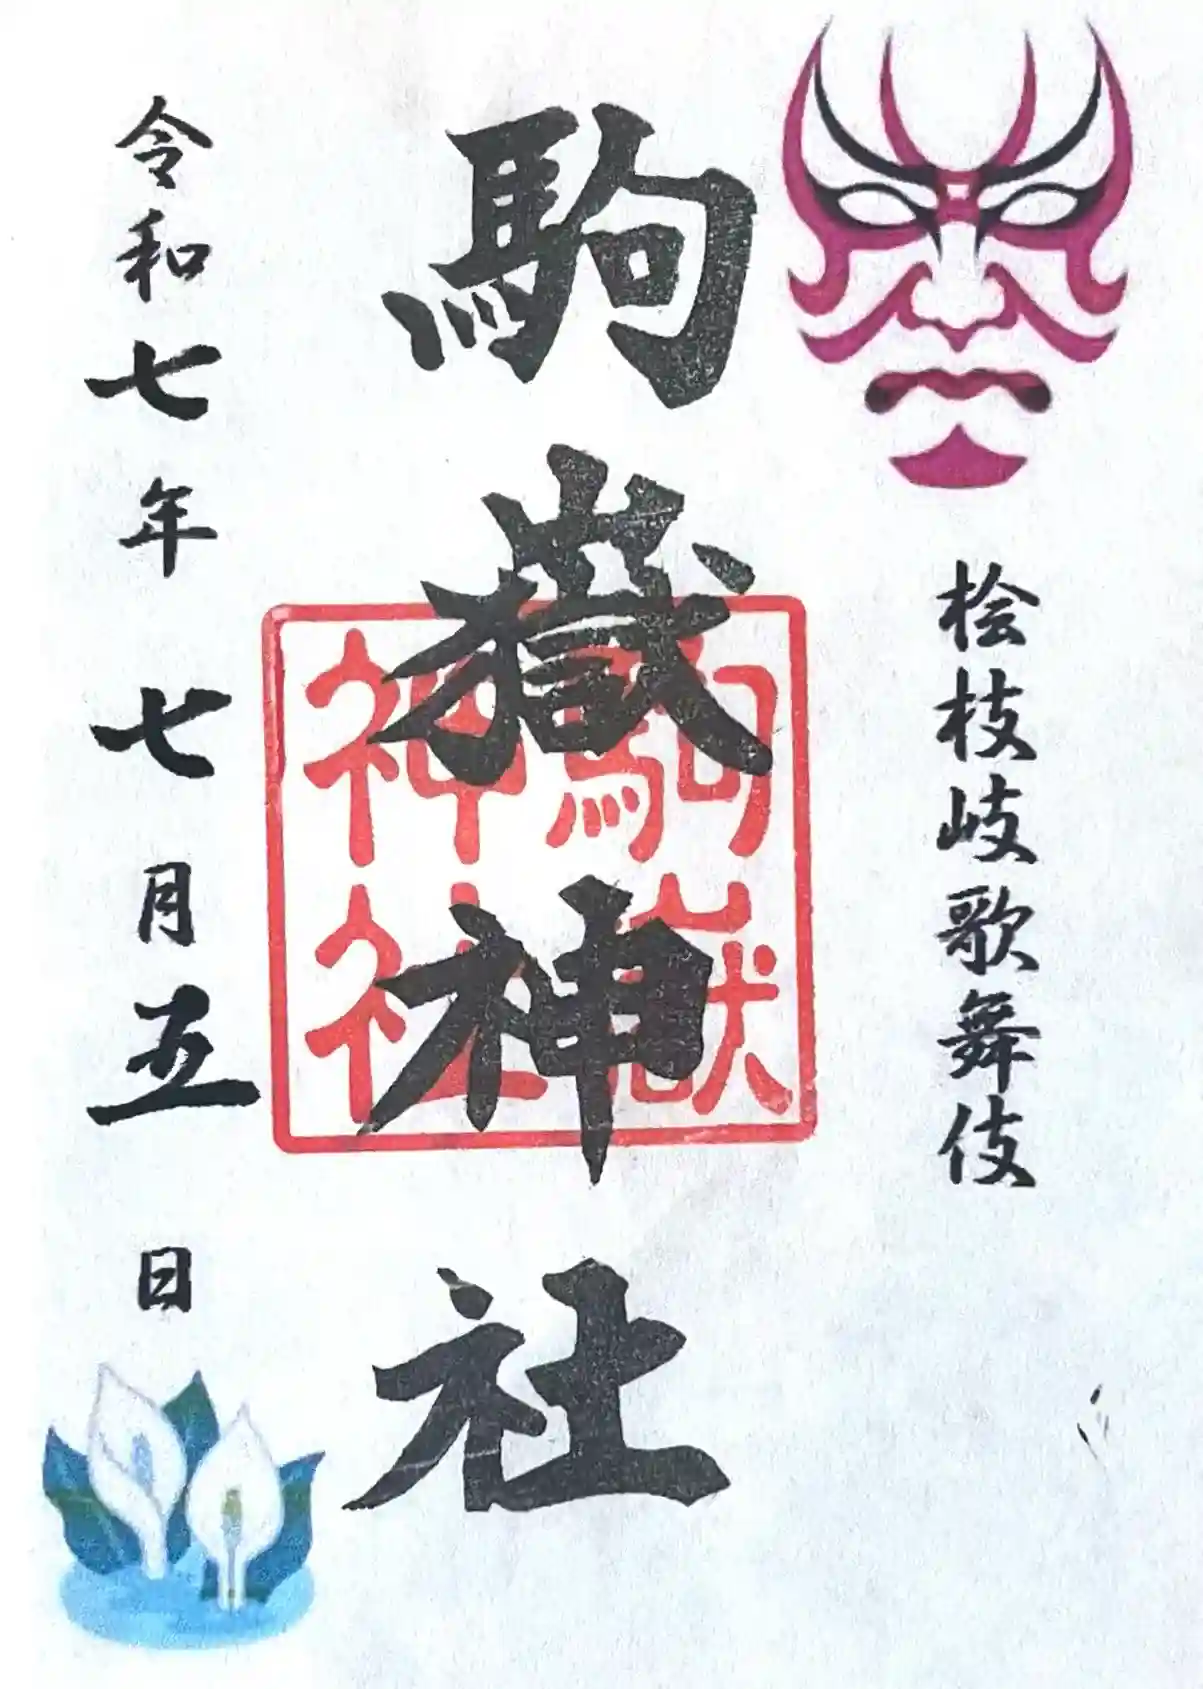 桧枝岐歌舞伎
駒嶽神社
駒嶽
神社
令和七年七月五日